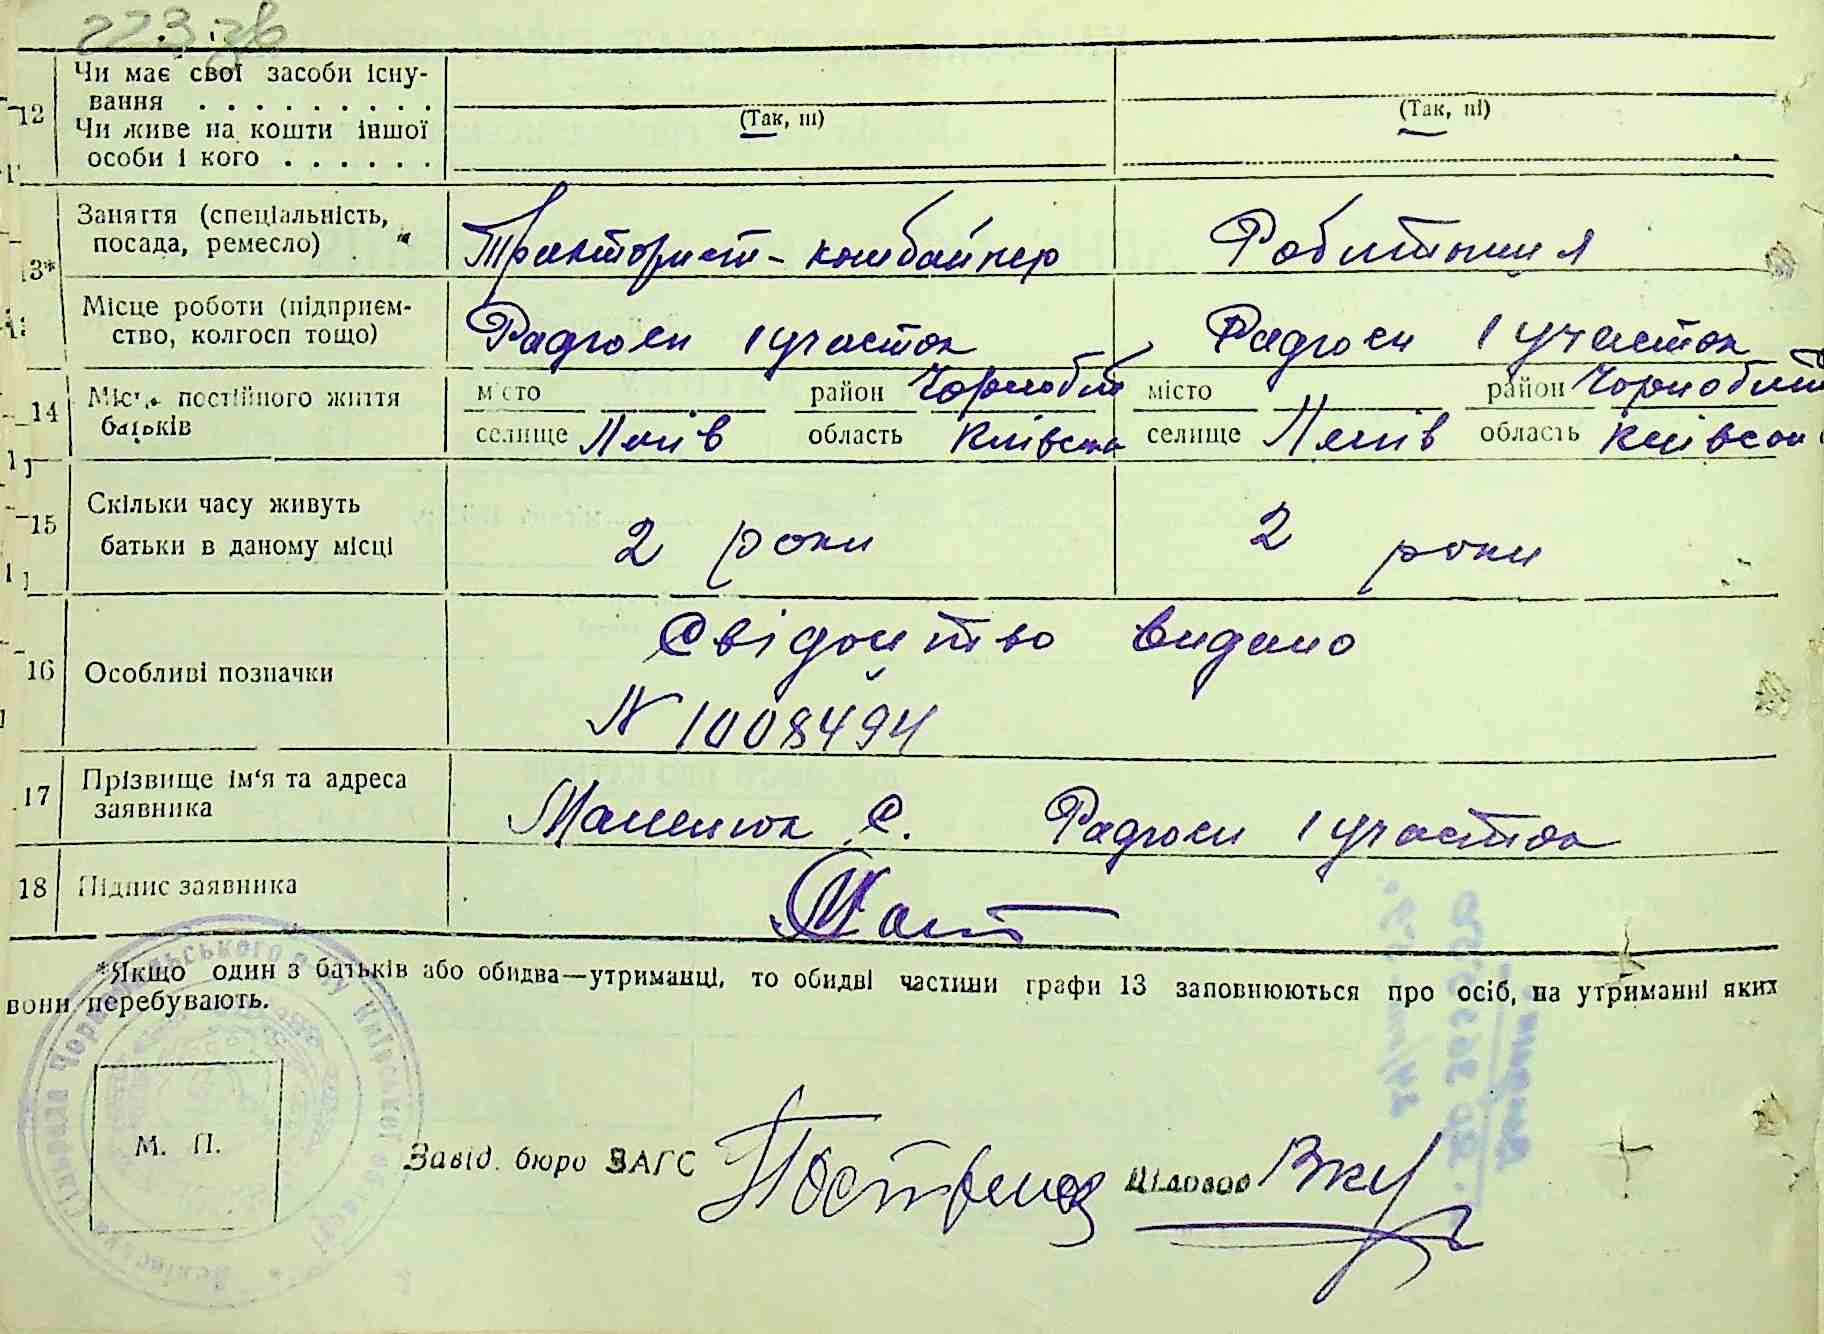 223 зв
12 Чи має свої засоби існу-
вання . . . . . . . . .
(Так, ні) (Так, ні)
Чи живе на кошти іншої
особи і кого . . . . . .
Заняття (спеціальність,
посада, ремесло) Тракторист - комбайнер Робитниця
13*
Місце роботи (підприєм-
ство, колгосп тощо) Радгосп 1 участок Радгосп 1 участок
14 Місце постійного життя
батьків
місто район Чорнобил місто район Чорнобил
селище область Київська селище область Київська
15 Скільки часу живуть
батьки в даному місці 2 роки 2 роки
16 Особливі позначки Свідоцтво видано
N 1008494
17 Прізвище ім'я та адреса
заявника С. Радгосп 1 участок
18 Підпис заявника
*Якщо один з батьків або обидва—утриманці, то обидві частини графи 13 заповнюються про осіб, на утриманні яких
вони перебувають.
М. П.
Завід. бюро ЗАГС Діловод